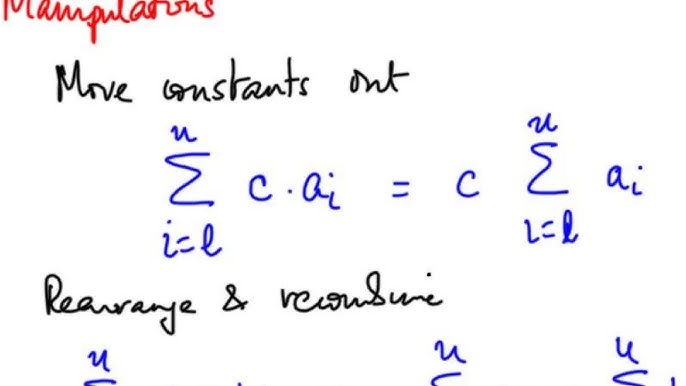 Manipulations
Move constants out
u u
∑ c · aᵢ = c ∑ aᵢ
i=l i=l
Rearrange & recombine
u u u